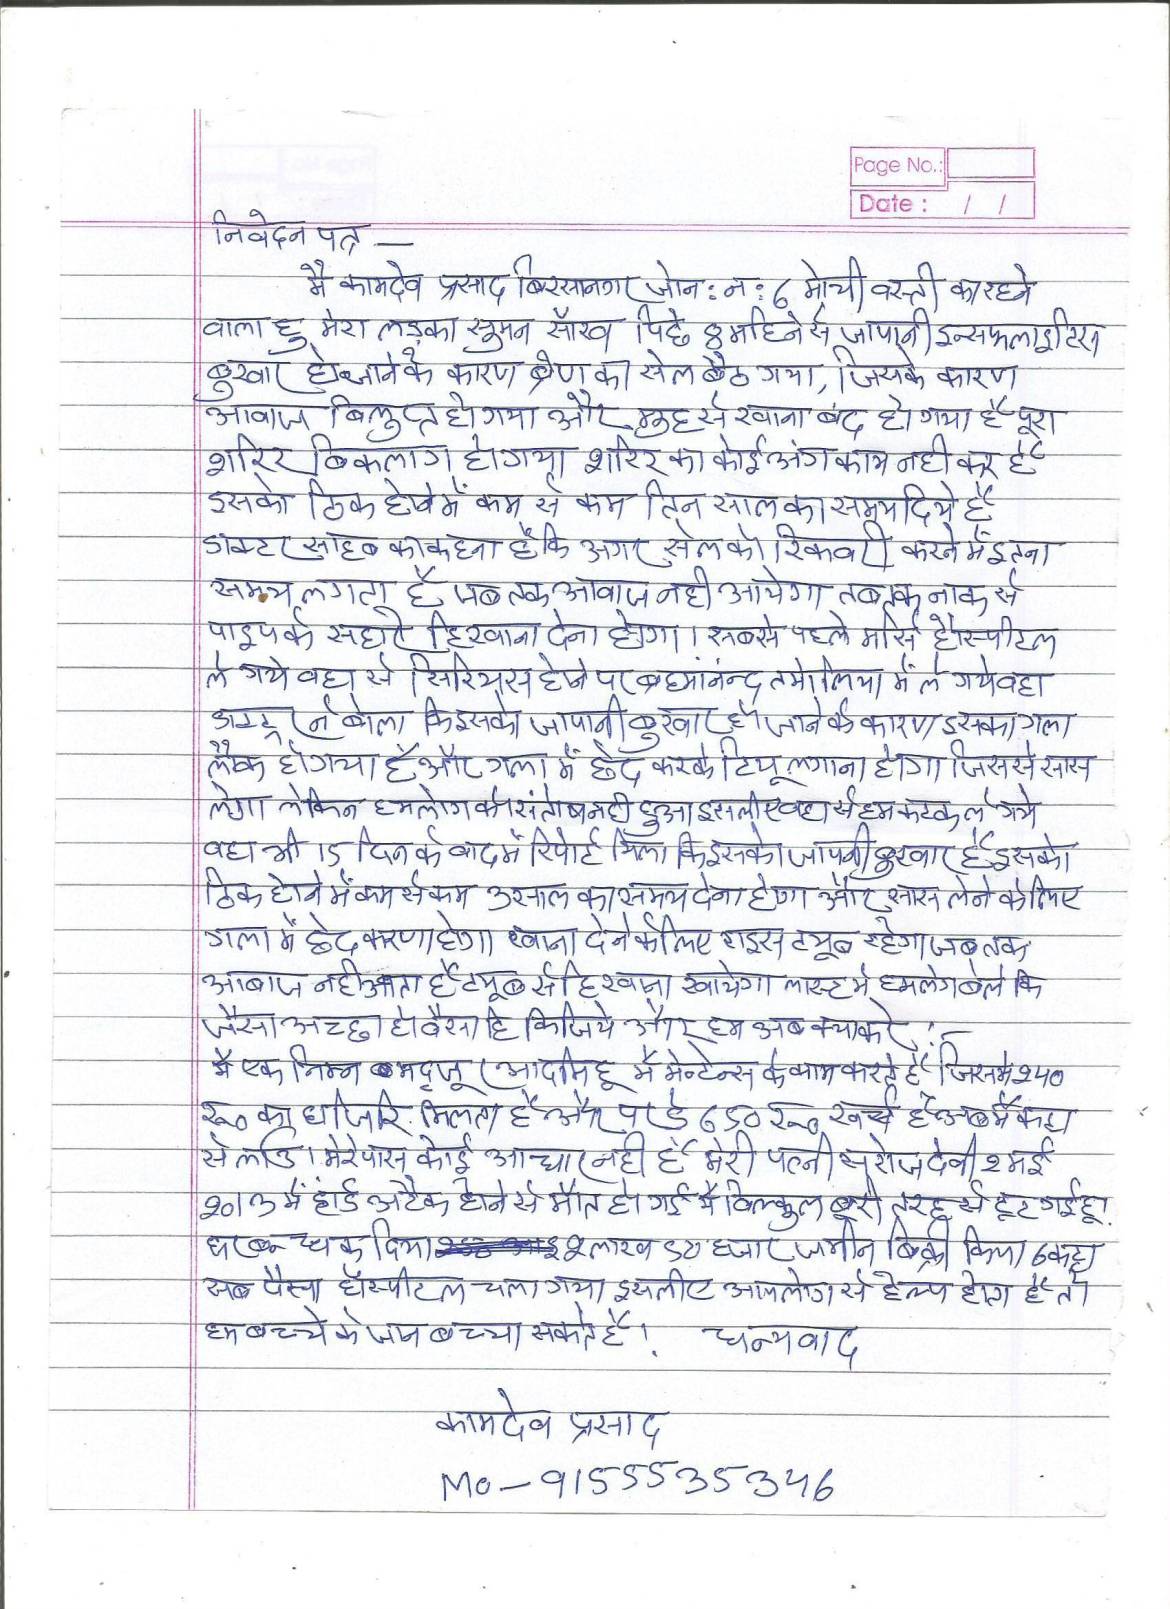 Page No.:
Date : / /
निवेदन पत्र —
मै कामदेव प्रसाद बिरसानगर जोन : न : ६ मोची वस्ती का रहने
वाला हु मेरा लड़का सुमन सॉरव पिछे 8 महिने से जापानी इन्सफलाइटिस
बुखार हो जाने के कारण ब्रेण का सेल बैठ गया, जिसके कारण
आवाज बिलुप्त हो गया और मुह से खाना बंद हो गया है पूरा
शरिर बिकलाग हो गया शरिर का कोई अंग काम नही कर है
इसको ठिक होने में कम से कम तिन साल का समय दिये है
डाक्टर साहब का कहना है कि अगर सेल को रिकवरी करने में इतना
समय लगता है जब तक आवाज नही आयेगा तब तक नाक से
पाइप के सहारे हि खाना देना होगा । सबसे पहले मर्सि हौस्पीटल
ले गये वहा से सिरियस होने पर ब्रह्मांनंन्द तमोलिया में ले गये वहा
डाक्टर ने बोला कि इसको जापानी बुखार हो जाने के कारण इसका गला
लॉक हो गया है और गला में छेद करके टियू लगाना होगा जिससे सास
लेगा लेकिन हमलोग को संतोष नही हुआ इसलीए वहा से हम कटक ले गये
वहा भी 15 दिन के बाद में रिपोर्ट मिला कि इसको जापनी बुखार है इसको
ठिक होने में कम से कम 3 साल का समय देना होगा और सास लेने के लिए
गला में छेद करणा होगा खाना देने के लिए राइस टयूब रहेगा जब तक
आबाज नही आता है टयूब से हि खाना खायेगा लास्ट मे हमलोग बोले कि
जैसा अच्छा हो वैसा हि किजिये और हम अब क्या करे !
मै एक निम्न मदृजूर आदमि हू मै मेन्टेन्स के काम करते है जिसमे २४०
रू० का हाजिरि मिलता है और पर डे ६५० रू० खर्च है अब मै कहा
से लाउ । मेरे पास कोई आधार नही है मेरी पत्नी सरोज देवी २ मई
२०१३ मे हार्ड अटैक होने से मौत हो गई मै विल्कुल बूरी तरह से टूट गई हू !
घर बेच दिया २ लाख ५० हजार जमीन बिक्री किया
सब पैसा हॉस्पीटल चला गया इसलीए आपलोग से हेल्प होता है तो
हम बच्चे के जान बच्चा सकते है ! धन्यवाद
कामदेव प्रसाद
Mo – 9155535346